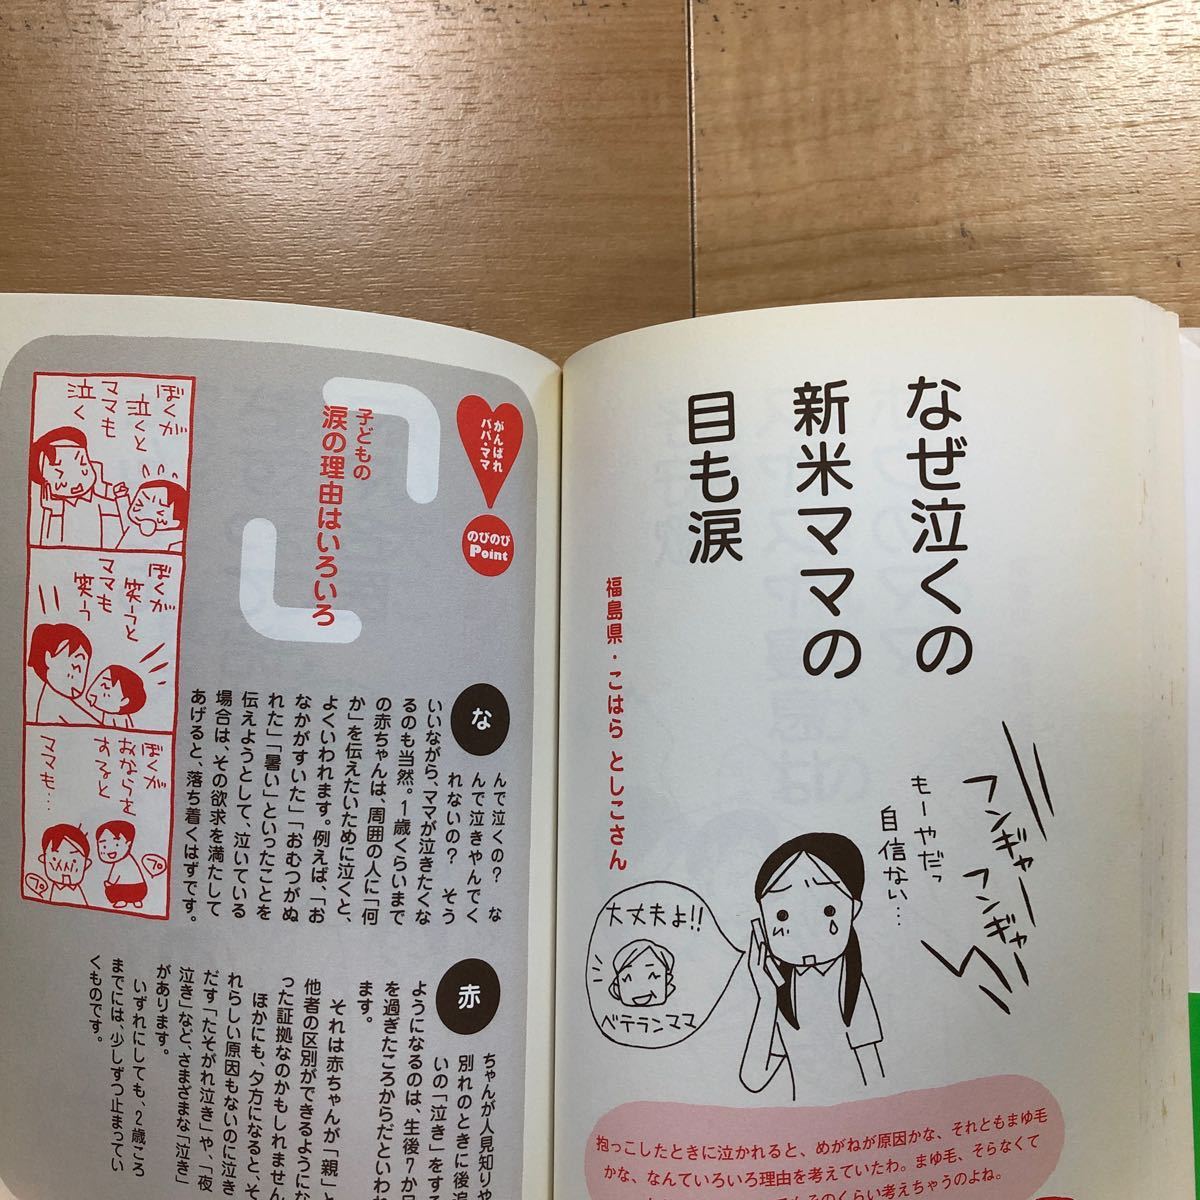 なぜ泣くの
新米ママの
目も涙
福島県・こはら としこさん
フンギャー
フンギャー
もーやだっ
自信ない…
大丈夫よ!!
ベテランママ
抱っこしたときに泣かれると、めがねが原因かな、それともまゆ毛
かな、なんていろいろ理由を考えていたわ。まゆ毛、そらなくて
そのくらい考えちゃうのよね。
がんばれ
パパ・ママ
のびのび
Point
子どもの
涙の理由はいろいろ
ぼくが
泣くと
ママも
泣く
ぼくが
笑うと
ママも
笑う
ぼくが
おならを
すると
ママも…
プロ
プロ
な
んで泣くの? な
んで泣きやんでく
れないの? そう
いいながら、ママが泣きたくな
るのも当然。1歳くらいまで
の赤ちゃんは、周囲の人に「何
か」を伝えたいために泣くと、
よくいわれます。例えば、「お
なかがすいた」「おむつがぬ
れた」「暑い」といったことを
伝えようとして、泣いている
場合は、その欲求を満たして
あげると、落ち着くはずです。
赤
ちゃんが人見知りや
別れのときに後追
いの「泣き」をする
ようになるのは、生後7か月
を過ぎたころからだといわれ
ます。
それは赤ちゃんが「親」と
他者の区別ができるようにな
った証拠なのかもしれません
ほかにも、夕方になると、そ
れらしい原因もないのに泣き
だす「たそがれ泣き」や、「夜
泣き」など、さまざまな「泣き」
があります。
いずれにしても、2歳ころ
までには、少しずつ止まってい
くものです。